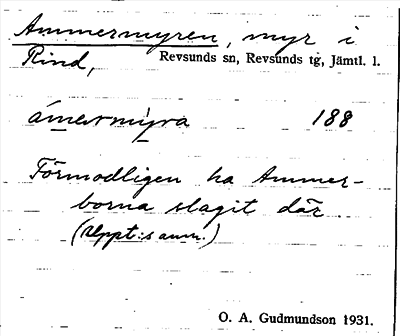 Ammermyren, myr i
Rind, Revsunds sn, Revsunds tg, Jämtl. l.
ámermỳra 188
Förmodligen ha Ammer-
borna slagit där
(Uppt:s anm.)
O. A. Gudmundson 1931.